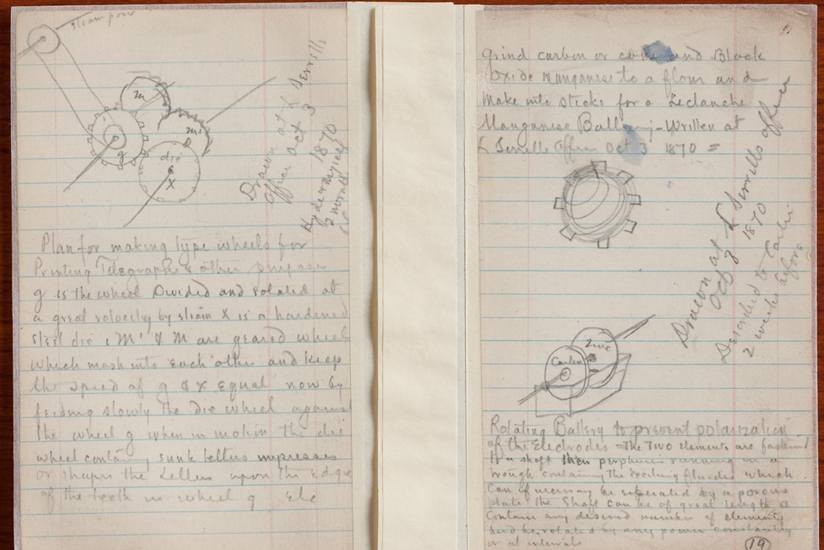 steam power
m
m'
g
die
X
Drawn at L Serrells
Office Oct 3
1870
Plan for making type wheels for
Printing Telegraphs & other purposes
g is the wheel Divided and rotated at
a great velocity by steam X is a hardened
steel die & M' & M are geared wheel
which mash into each other and keep
the speed of g & X equal now by
feeding slowly the die wheel against
the wheel g when in motion the die
wheel containing sunk letters impresses
or shapes the Letters upon the Edge
of the teeth in wheel g Etc
grind carbon or and Black
Oxide Manganese to a flour and
Make into sticks for a Leclanche
Manganese Battery;- Written at
L Serrells Office Oct 3 1870 =
Drawn at L Serrells office
Oct 3 1870
Described to
2 weeks before
Carbon
Zinc
Rotating Battery to prevent polarization
of the Electrodes = The Two elements are fastened
to a shaft their periphery running in a
trough containing the exciting fluid which
can if necessary be seperated by a porous
plate the Shaft can be of great length &
Contain any desired number of elements
and be rotated by any power constantly
or at intervals
19